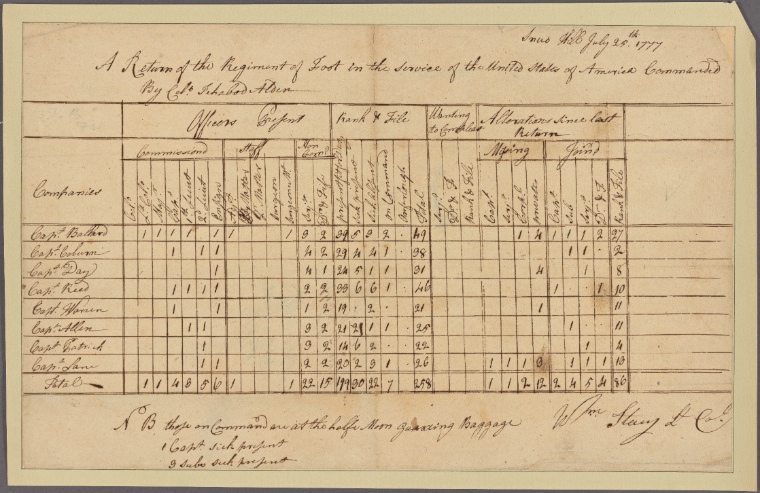 July 25th 1777
A Return of the Regiment of Foot in the Service of the United States of America Commanded
By Colo Ichabod Alden
Officers Present Rank & File Wanting to Compleat Alterations since last Return
Commissiond Staff Non Comd Missing Joind
Companies Colo Lt Colo Majr Capt 1st Lieut 2d Lieut Ensign Adjt Qr Master Surgeon Sergt Sick present Sick absent on Command Total Sergt Rank & File Capt Sergt Corpl privates Capt Sub Sergt D & F Rank & File
Capt Ballard 1 1 1 1 1 1 1 3 2 39 5 3 2 . 49 1 . 4 1 1 2 27
Capt Coburn 1 1 1 4 2 29 4 4 1 . 38 1 1 . 2
Capt Day 1 4 1 24 5 1 1 31 4 1 8
Capt Reed 1 1 1 1 2 2 33 6 6 1 . 46 1 . 1 10
Capt Warren 1 1 1 2 19 . 2 . 21 1 11
Capt Allen 1 1 3 2 21 2 1 1 . 25 1 . 11
Capt Patrick 1 3 2 14 6 2 . . 22 1 . 4
Capt Lane 1 1 2 2 20 2 3 1 . 26 1 1 1 3 1 1 1 13
Total 1 1 4 3 5 6 1 1 22 15 199 30 22 7 258 1 1 2 12 2 4 5 4 86
N B those on Command are at the halfe Moon Guarding Baggage
Wm Stacy Lt Col
1 Capt sick present
3 subs sick present